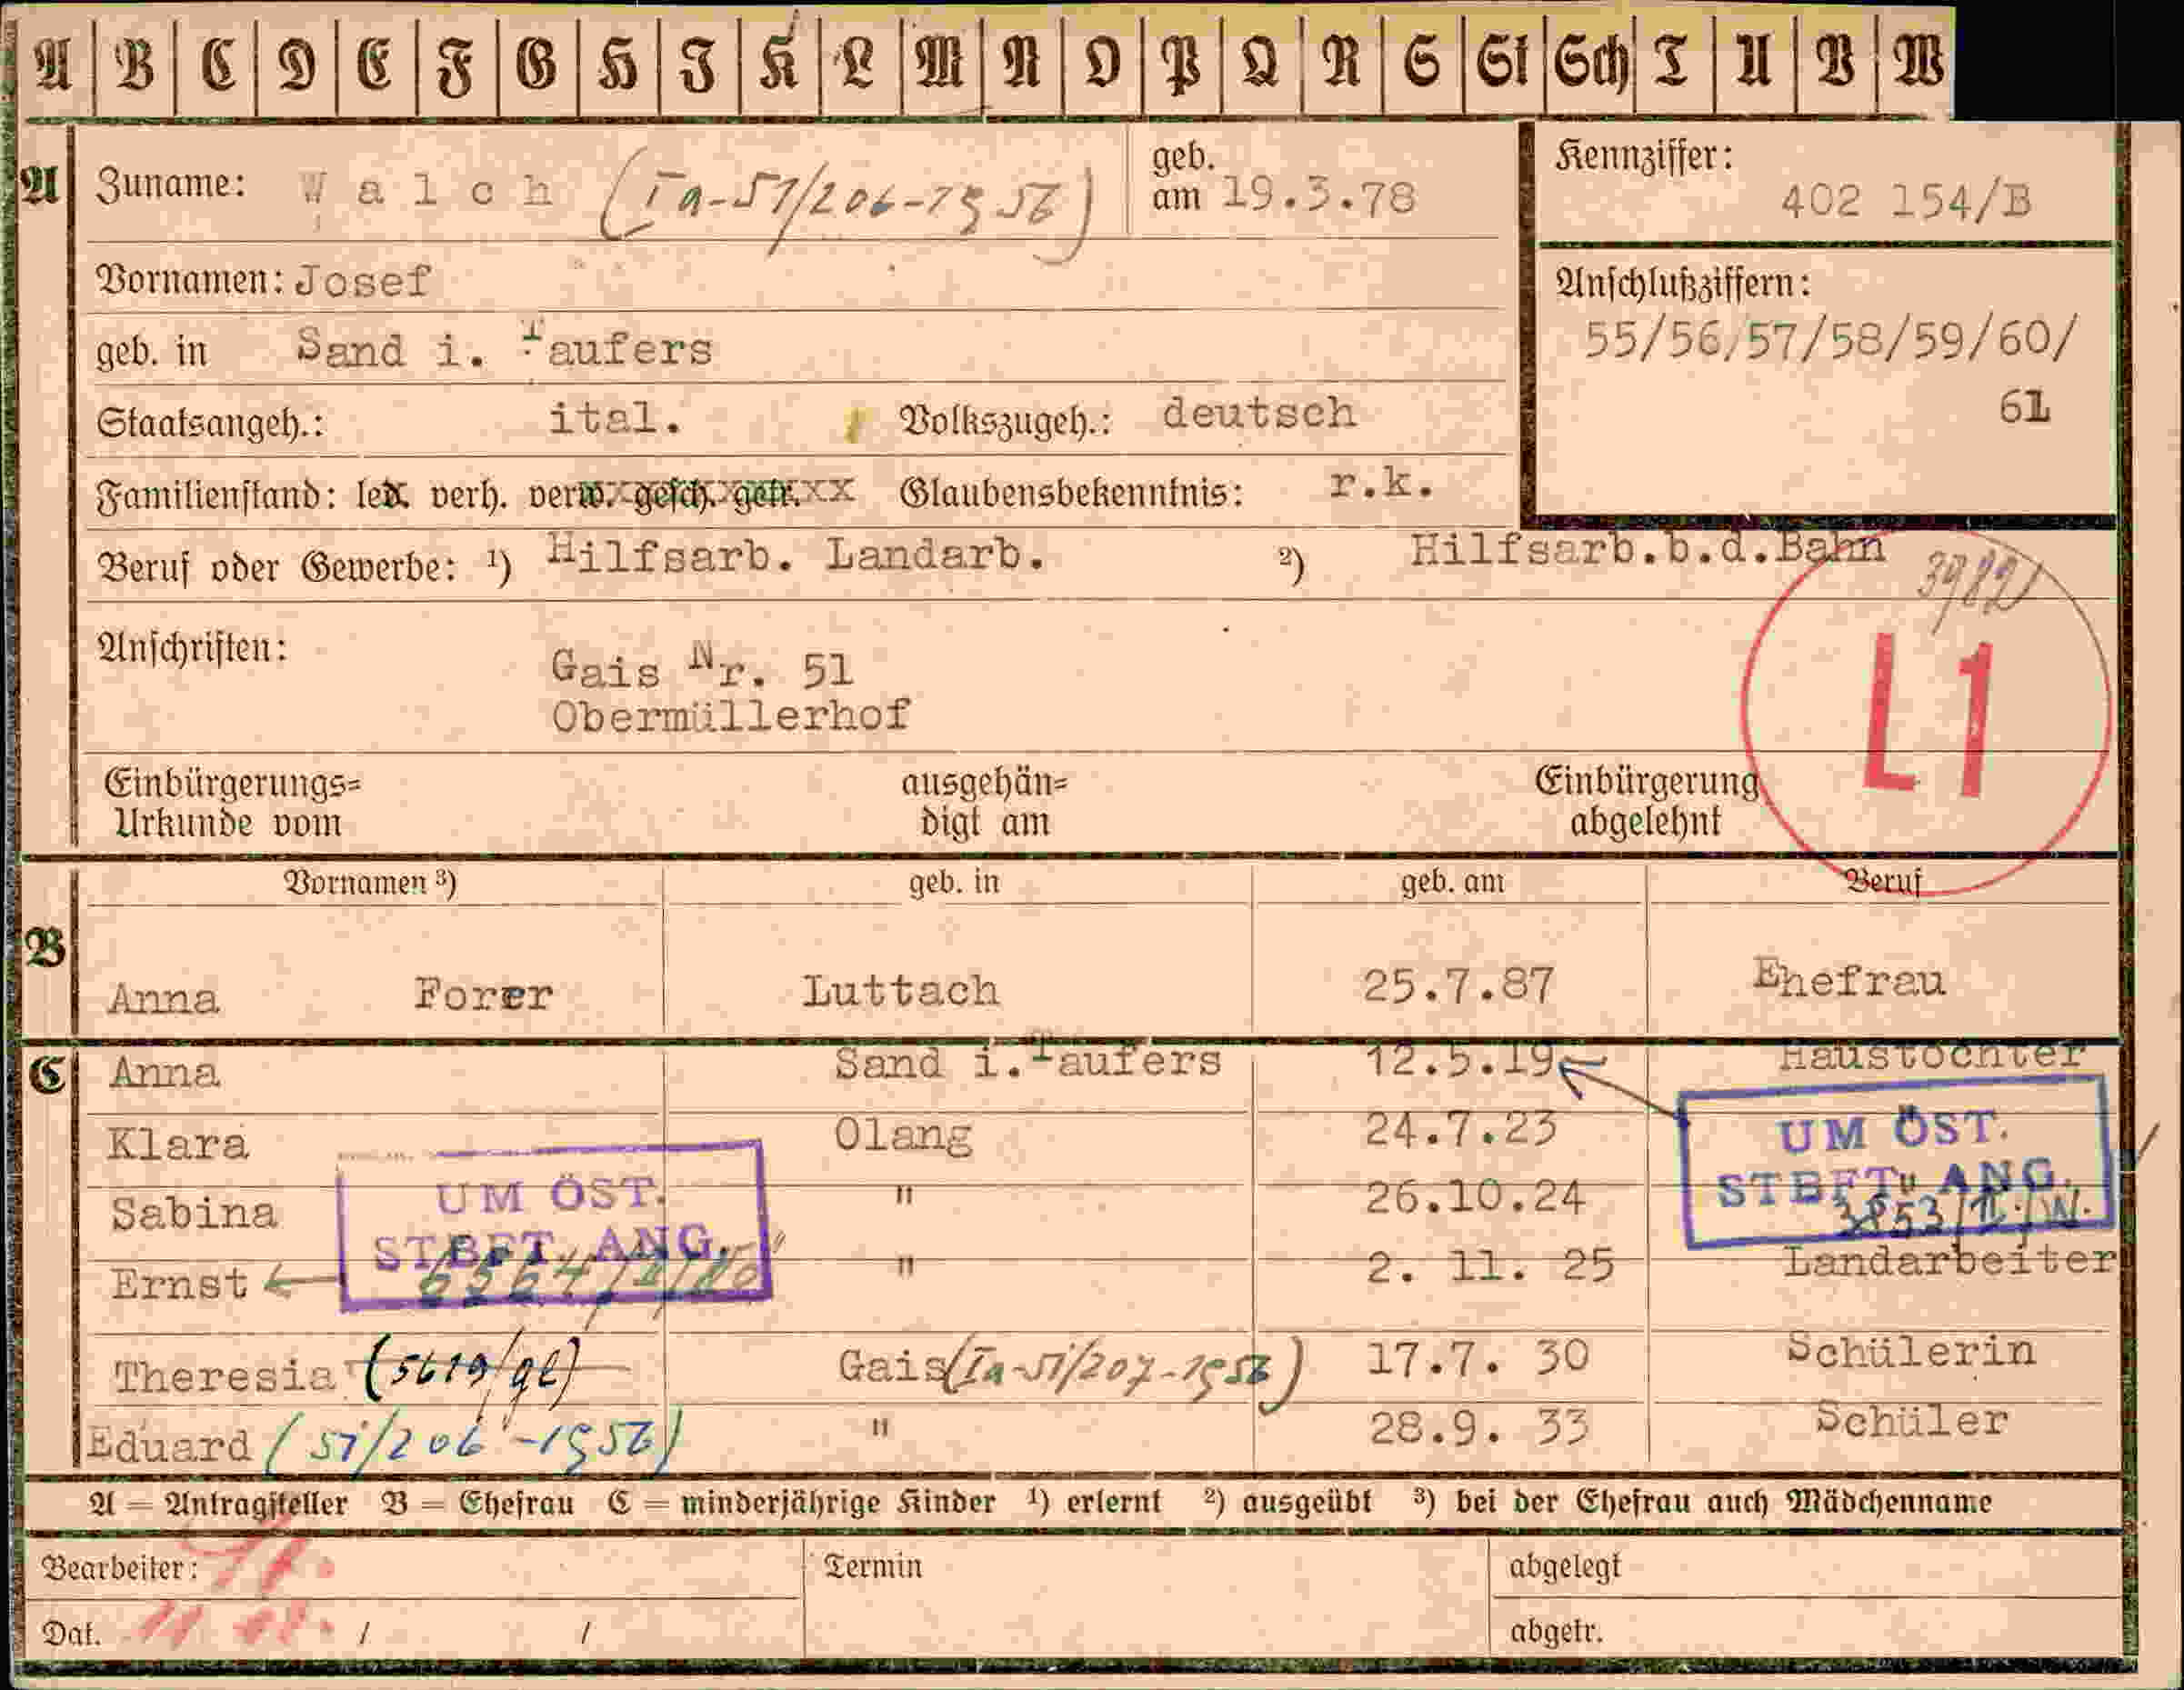 A B C D E F G H I K L M N O P Q R S St Sch T U V W
A Zuname: Walch (Ia-51/206-1956) geb. am 19.3.78
Kennziffer: 402 154/B
Vornamen: Josef
Anschlußziffern:
55/56/57/58/59/60/
61
geb. in Sand i. Taufers
Staatsangeh.: ital. Volkszugeh.: deutsch
Familienstand: led. verh. verw. gesch. getr. Glaubensbekenntnis: r.k.
Beruf oder Gewerbe: ¹) Hilfsarb. Landarb. ²) Hilfsarb.b.d.Bahn
L1
Anschriften: Gais Nr. 51
Obermüllerhof
Einbürgerungs= ausgehän= Einbürgerung
Urkunde vom digt am abgelehnt
Vornamen ³) geb. in geb. am Beruf
B Anna Forer Luttach 25.7.87 Ehefrau
C Anna Sand i. Taufers 12.5.19 Haustochter
Klara Olang 24.7.23
UM ÖST.
STBFT. ANG.
Sabina " 26.10.24 "
UM ÖST.
STBFT. ANG.
Ernst " 2. 11. 25 Landarbeiter
Theresia (5619/gl) Gais (Ia-51/207-1956) 17.7. 30 Schülerin
Eduard (51/206-1956) " 28.9. 33 Schüler
A = Antragsteller B = Ehefrau C = minderjährige Kinder ¹) erlernt ²) ausgeübt ³) bei der Ehefrau auch Mädchenname
Bearbeiter: Termin abgelegt
Dat. / / abgetr.